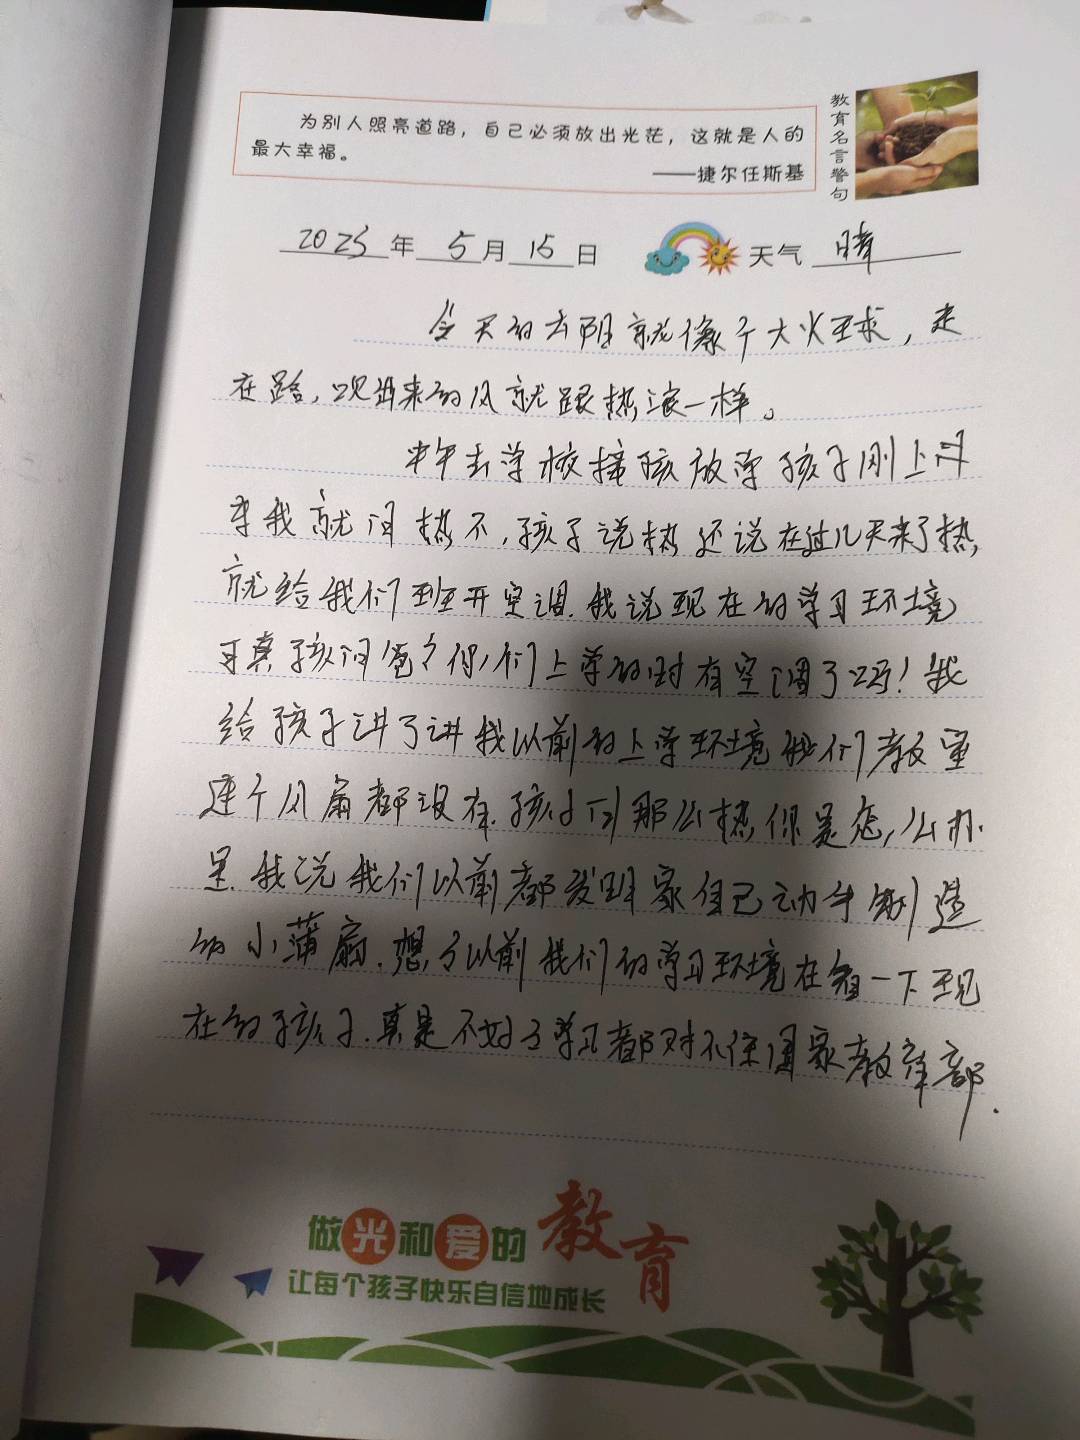 为别人照亮道路，自己必须放出光芒，这就是人的
最大幸福。
——捷尔任斯基
教育名言警句
2023年 5月 15日 天气 晴
今天的太阳就像个大火球，走
在路，吹出来的风就跟热浪一样。
中午去学校接孩放学孩子刚上
车我就问热不，孩子说热还说在过几天来了热，
就给我们班开空调.我说现在的学习环境
可真孩问爸爸你们上学的时有空调了吗！我
给孩子讲了讲我以前的上学环境我们教室
连个风扇都没有.孩子问那么热你是怎么办
呈.我说我们以前都发明家自己动手制造
的小蒲扇.想了以前我们的学习环境在看一下现
在的孩子.真是不好了学习都对不住国家教育部.
做光和爱的教育
让每个孩子快乐自信地成长